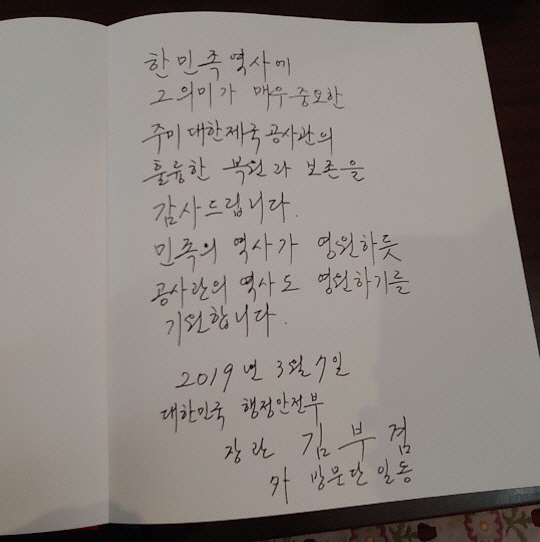 한민족 역사에
그 의미가 매우 중요한
주미대한제국공사관의
훌륭한 복원과 보존을
감사드립니다.
민족의 역사가 영원하듯
공사관의 역사도 영원하기를
기원합니다.
2019년 3월 7일
대한민국 행정안전부
장관 김부겸
外 방문단 일동